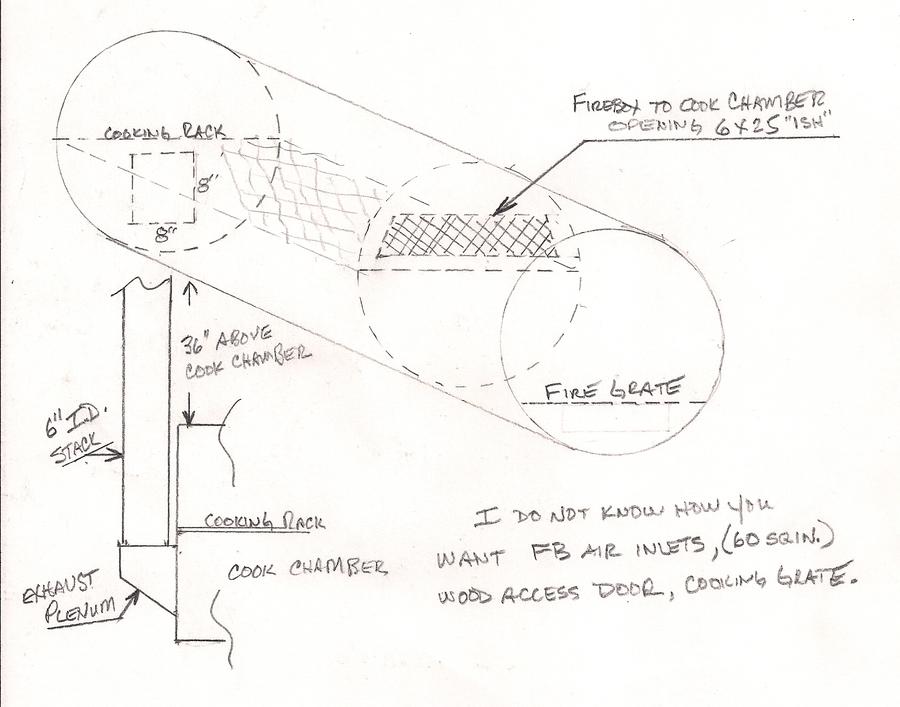 FIREBOX TO COOK CHAMBER
OPENING 6 X 25 "ISH"
COOKING RACK
8"
8"
36" ABOVE
COOK CHAMBER
FIRE GRATE
6" I.D.
STACK
COOKING RACK
COOK CHAMBER
EXHAUST
PLENUM
I DO NOT KNOW HOW YOU
WANT FB AIR INLETS, (60 SQ.IN.)
WOOD ACCESS DOOR, COOKING GRATE.